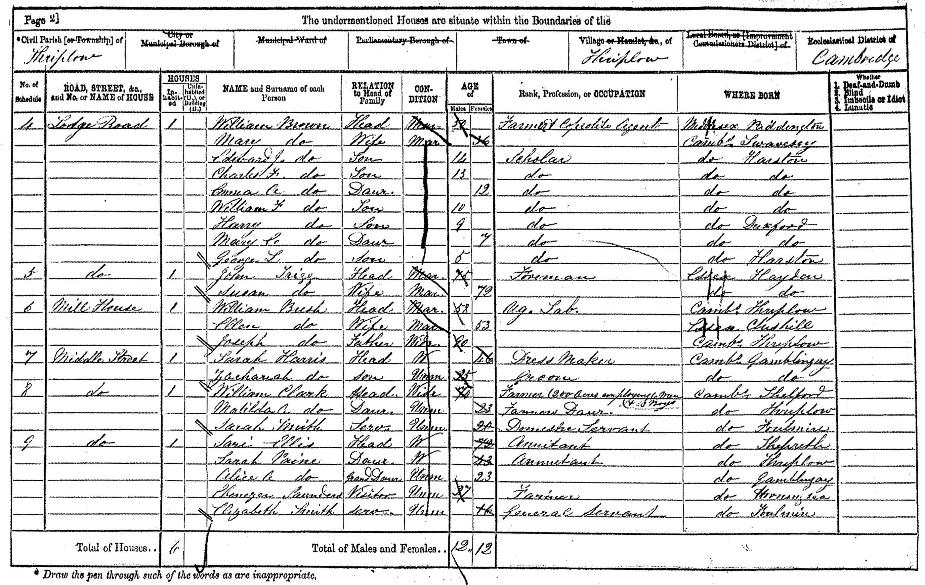 Page 2]
The undermentioned Houses are situate within the Boundaries of the
*Civil Parish [or Township] of
City or Municipal Borough of
Municipal Ward of
Parliamentary Borough of
Town of
Village or Hamlet, &c., of
Local Board, or [Improvement Commissioners District] of
Ecclesiastical District of
Thriplow
Thriplow
Cambridge
No. of Schedule
ROAD, STREET, &c., and No. or NAME of HOUSE
HOUSES
Inhabited
Uninhabited (U.), or Building (B.)
NAME and Surname of each Person
RELATION to Head of Family
CONDITION
AGE of
Males
Females
Rank, Profession, or OCCUPATION
WHERE BORN
Whether
1. Deaf-and-Dumb
2. Blind
3. Imbecile or Idiot
4. Lunatic
4 Lodge Road 1 William Brown Head Mar Middsex Paddington
Mary do Wife Mar 36 Cambs Swavesey
Edward J. do Son 14 Scholar do Harston
Charles F. do Son 13 do do do
Emma A. do Daur. 12 do do do
William F. do Son 10 do do do
Harry do Son 9 do do Duxford
Mary E. do Daur 7 do do do
George L. do Son 5 do do Harston
5 do 1 John Head Mar. 75 Foreman Essex Haydon
Susan do Wife Mar 79 do do
6 Mill House 1 William Bush Head Mar. 58 Ag. Lab. Cambs Thriplow
Ellen do Wife Mar 53 Essex Chishill
Joseph do Father Widr. 90 Cambs Thriplow
7 Middle Street 1 Sarah Harris Head W Dress Maker Cambs Gamblingay
Zachariah do son Unm 25 Groom do do
8 do 1 William Clark Head Widr Farmer 1200 acres employing Men Cambs Shelford
Matilda A. do Daur. Unm 23 Farmers Daur. do Thriplow
Sarah Smith Serv. Unm Domestic Servant do Foulmire
9 do 1 Jane Ellis Head W Annuitant do Shepreth
Sarah Paine Daur. W 43 Annuitant do Thriplow
Alice A. do grand Daur Unm 23 do Gamblingay
Ebenezer Saunders Visitor Unm 27 Farmer do
Elizabeth Smith serv Unm General Servant do Foulmire
Total of Houses.. 6
Total of Males and Females.. 12 12
* Draw the pen through such of the words as are inappropriate.